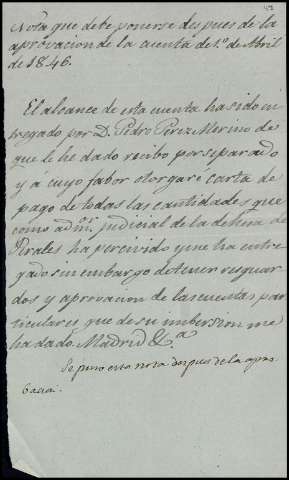 Nota que debe ponerse despues de la
aprovacion de la cuenta de 1.º de Abril
de 1846.
El alcance de esta cuenta ha sido en
tregado por D. Pedro Perez Merino de
que le he dado recibo por separado
y á cuyo fabor otorgaré carta de
pago de todas las cantidades que
como adm.or judicial de la dehesa de
Pirales ha percivido y me ha entre
gado sin embargo de tener resguar
dos y aprovacion de las cuentas par
ticulares que de su imbersion me
ha dado. Madrid &.a
Se puso esta nota despues de la apro
bacion.